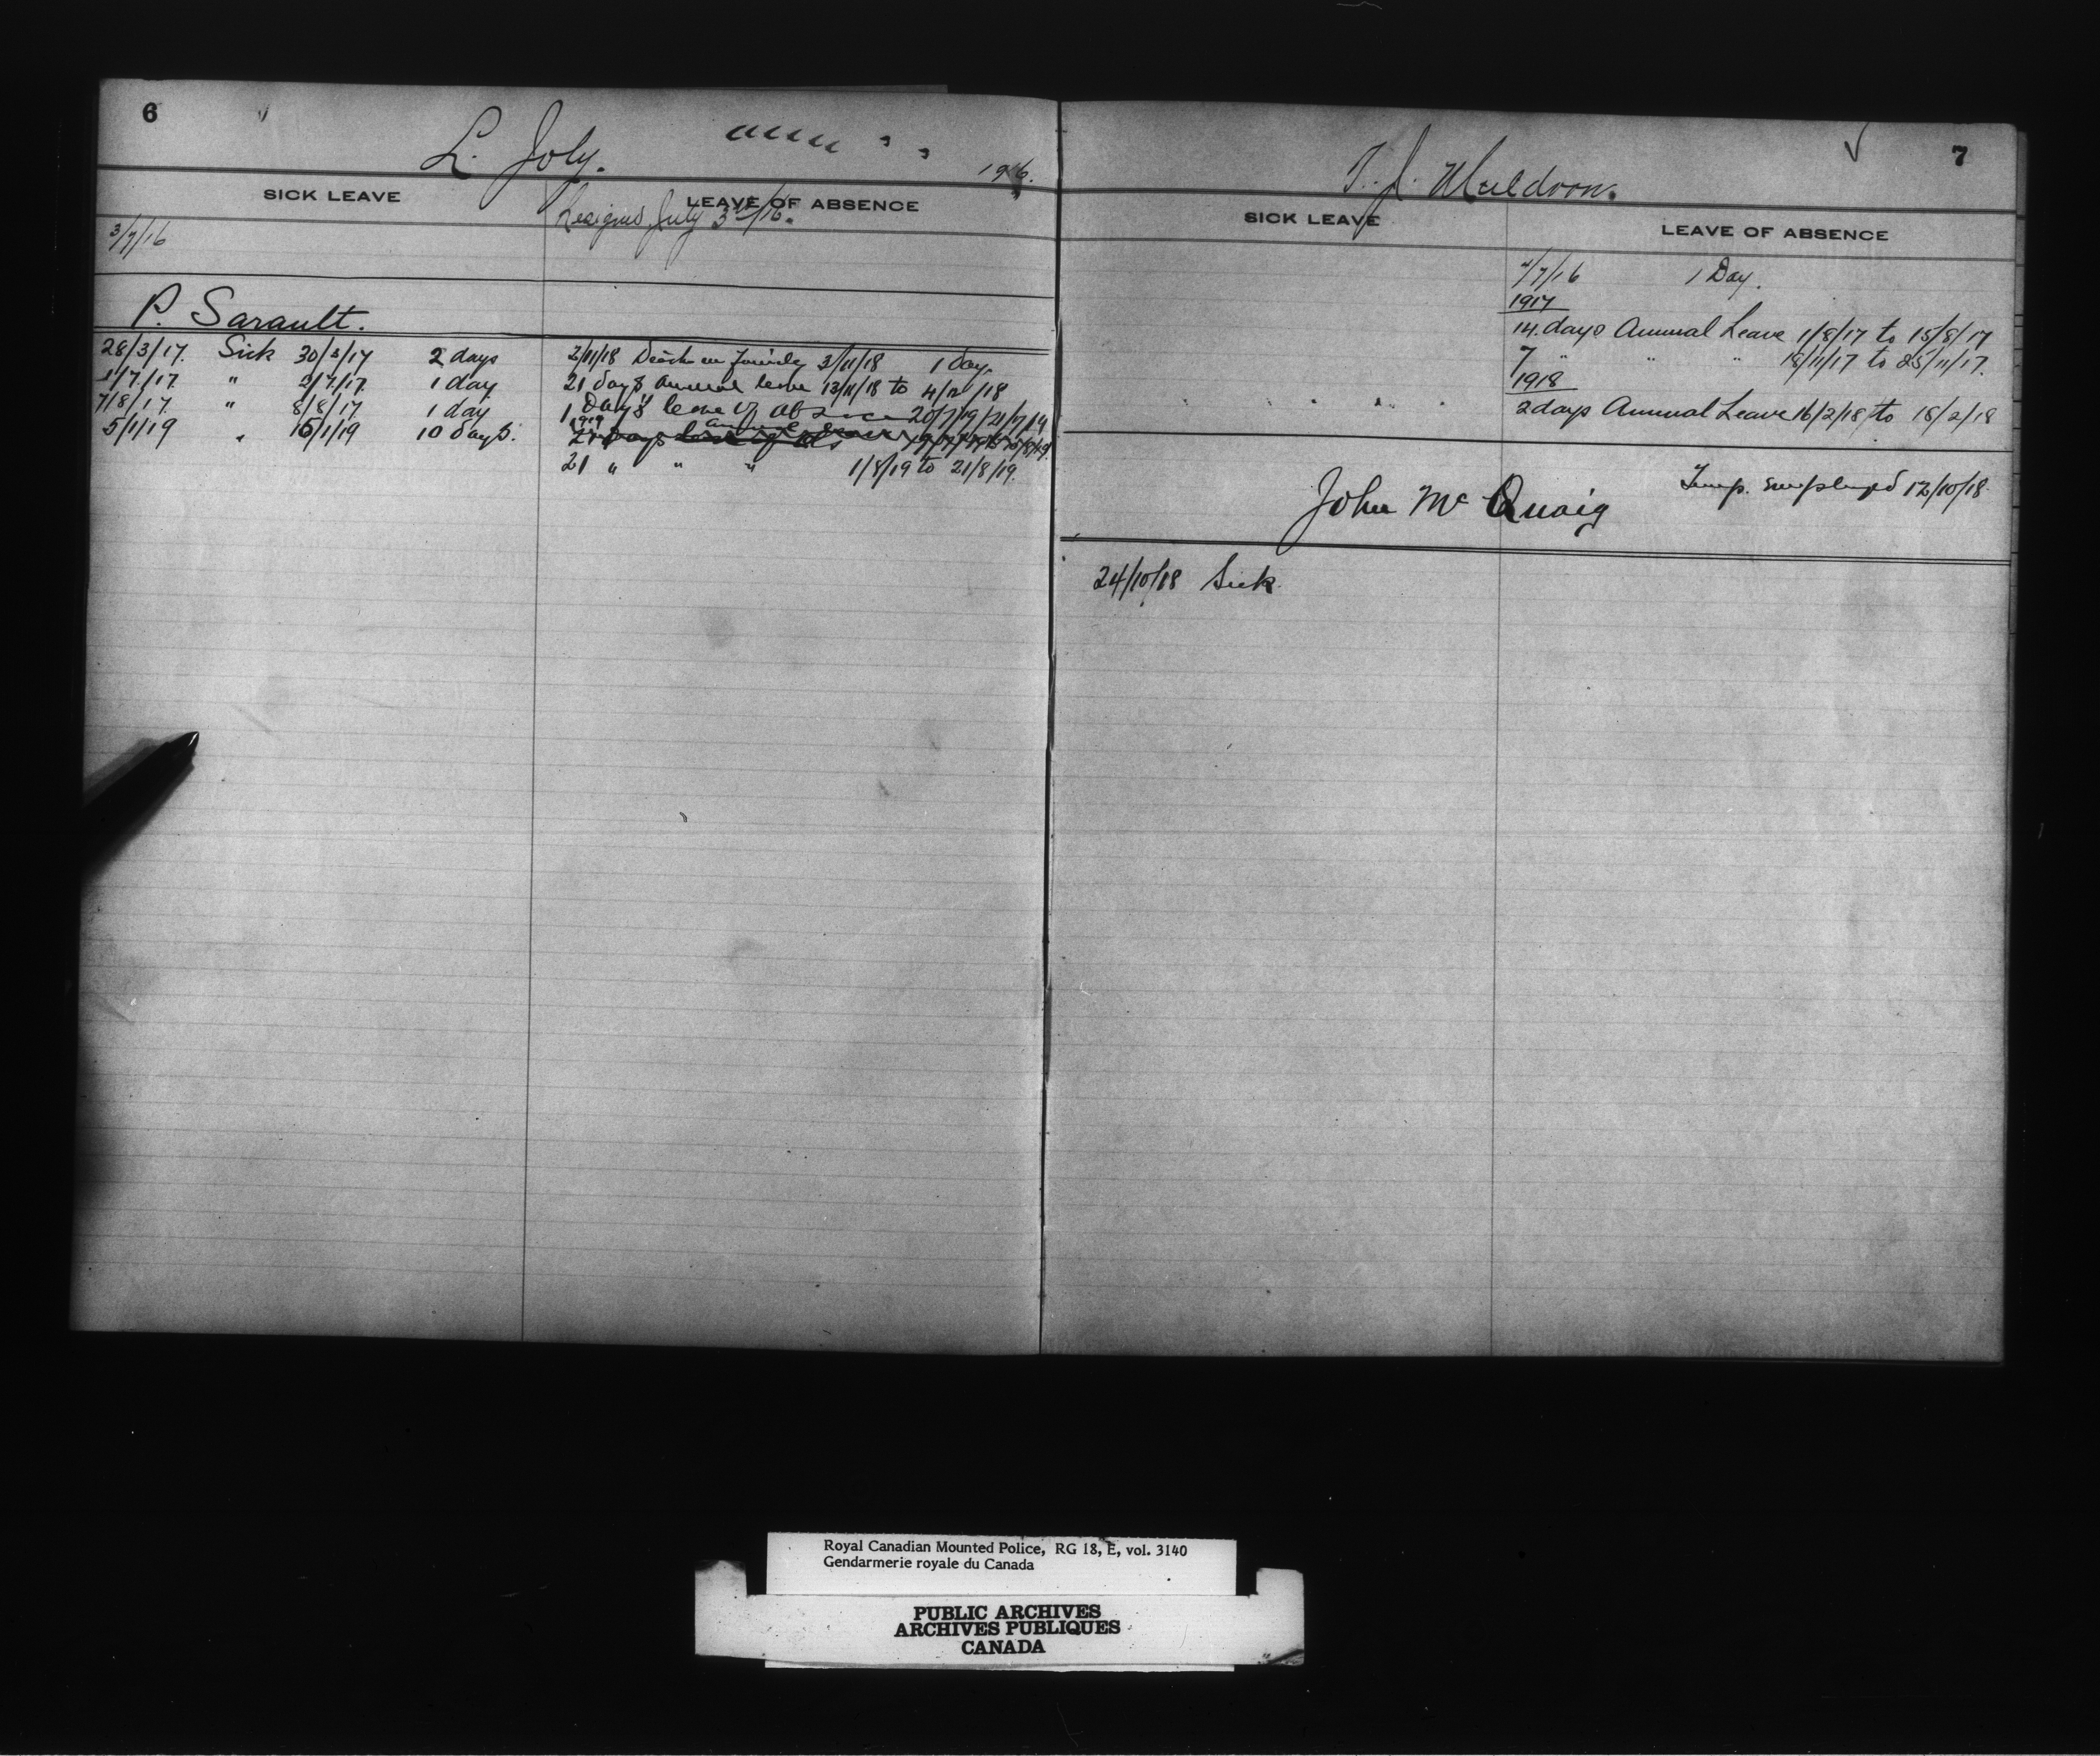 6
L. Joly.
1916.
SICK LEAVE
LEAVE OF ABSENCE
Resigned July 3rd/16.
3/7/16
P. Sarault.
28/3/17. Sick 30/3/17 2 days
1/7/17. " 2/7/17. 1 day
7/8/17. " 8/8/17. 1 day
5/1/19 " 15/1/19 10 days.
2/11/18 Death in family 3/11/18 1 day.
21 days annual leave 13/11/18 to 4/12/18
1 Day's leave of absence 20/7/19/21/7/19
1919
annual leave
21 " " " 1/8/19 to 21/8/19.
7
T. J. Muldoon.
SICK LEAVE
LEAVE OF ABSENCE
4/7/16 1 Day.
1917
14. days Annual Leave 1/8/17 to 15/8/17
7 " " " 18/11/17 to 25/11/17.
1918
2 days Annual Leave 16/2/18 to 18/2/18
John McQuaig
Temp. employed 12/10/18.
24/10/18 Sick.
Royal Canadian Mounted Police, RG 18, E, vol. 3140
Gendarmerie royale du Canada
PUBLIC ARCHIVES
ARCHIVES PUBLIQUES
CANADA